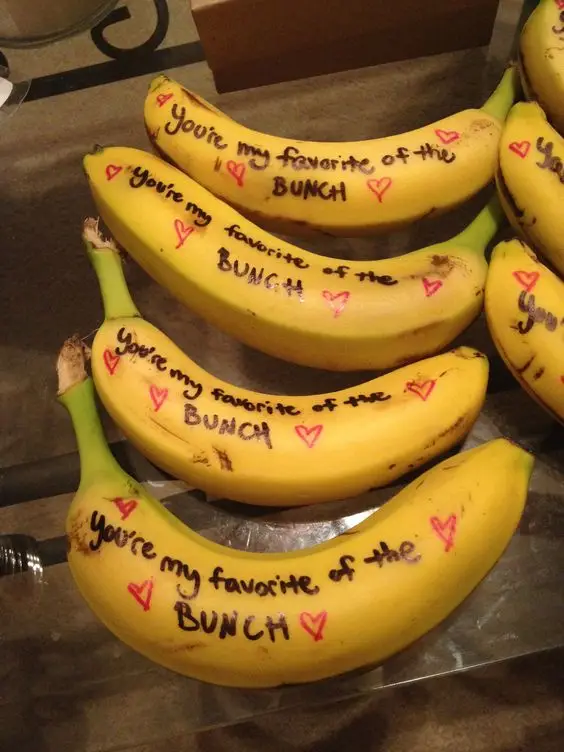 You're my favorite of the
BUNCH
You're my favorite of the
BUNCH
You're my favorite of the
BUNCH
You're my favorite of the
BUNCH
You